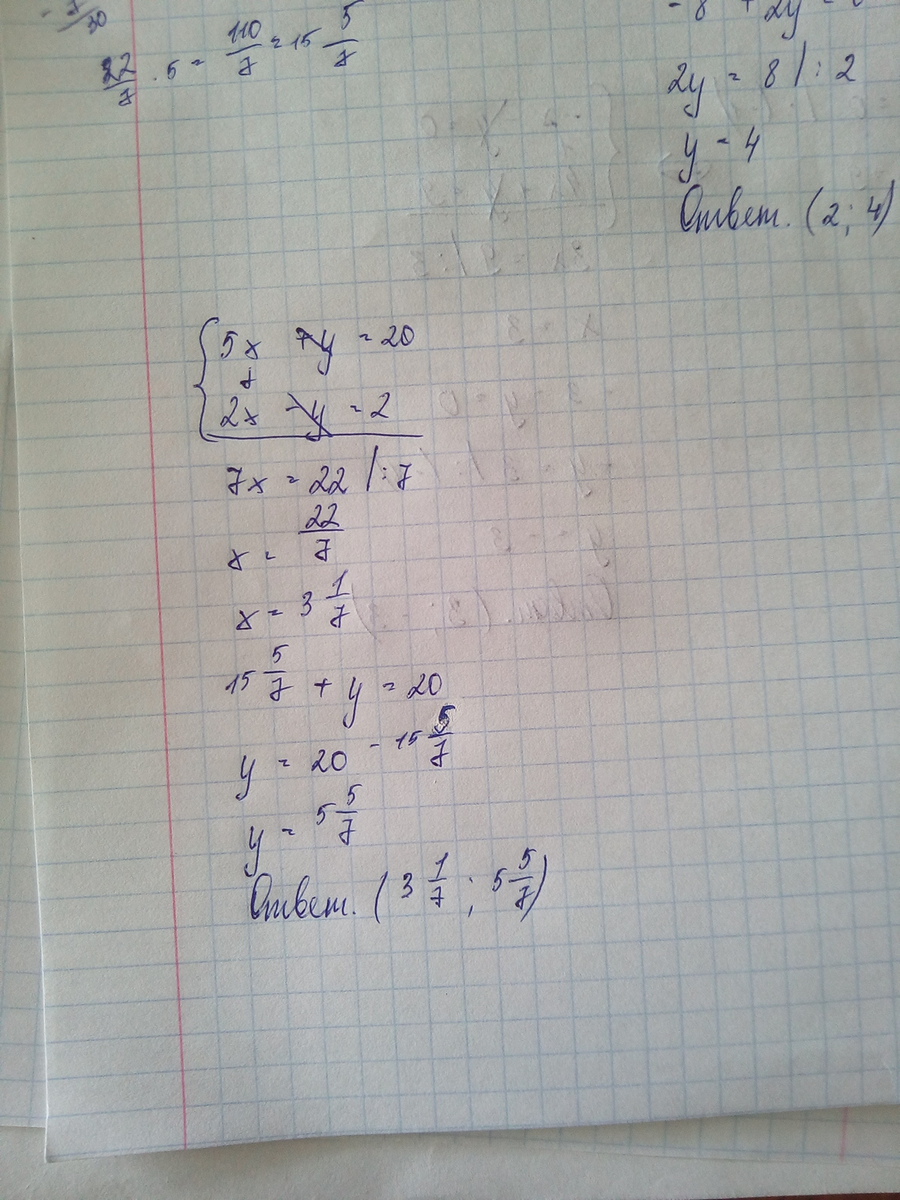 - 7/30
22/7 · 5 = 110/7 = 15 5/7
- 8 + 2y =
2y = 8 | : 2
y = 4
Ответ. (2; 4)
5x + y = 20
+
2x - y = 2
7x = 22 | : 7
x = 22/7
x = 3 1/7
15 5/7 + y = 20
y = 20 - 15 5/7
y = 5 5/7
Ответ. (3 1/7 ; 5 5/7)